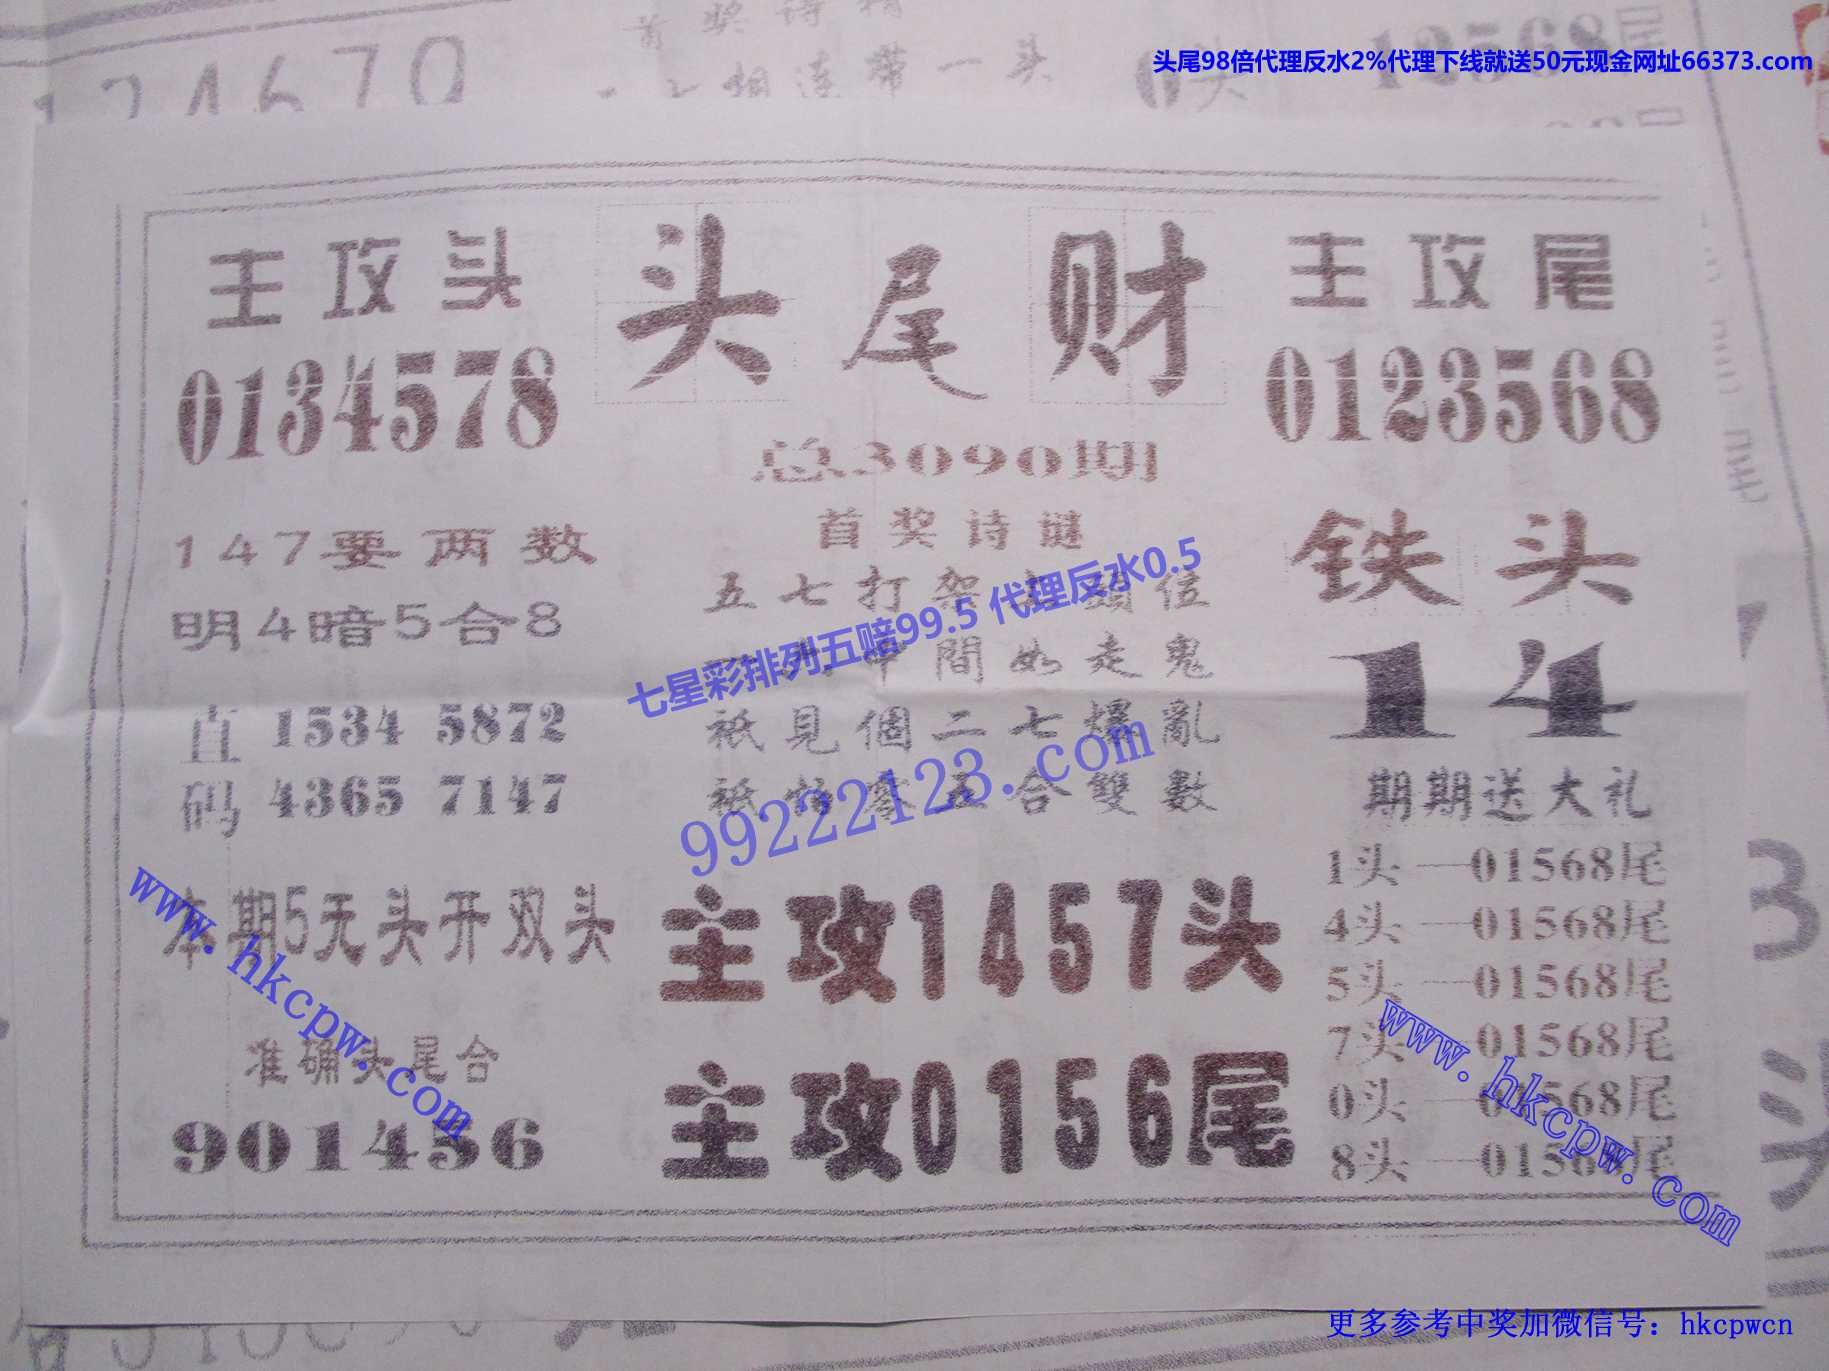 首奖诗
124670
一头
6头
12568尾
头尾98倍代理反水2%代理下线就送50元现金网址66373.com
主攻头
头尾财
主攻尾
0134578
0123568
总3090期
147要两数
首奖诗谜
铁头
明4暗5合8
五七打架
位
間如走鬼
七星彩排列五赔99.5 代理反水0.5
14
直 1534 5872
码 4365 7147
祇見個二七爆亂
祇
合雙數
99222123.com
期期送大礼
1头—01568尾
4头—01568尾
5头—01568尾
7头—01568尾
0头—01568尾
8头—01568尾
本期5无头开双头
主攻1457头
准确头尾合
901456
主攻0156尾
www.hkcpw.com
www.hkcpw.com
3
头
更多参考中奖加微信号：hkcpwcn